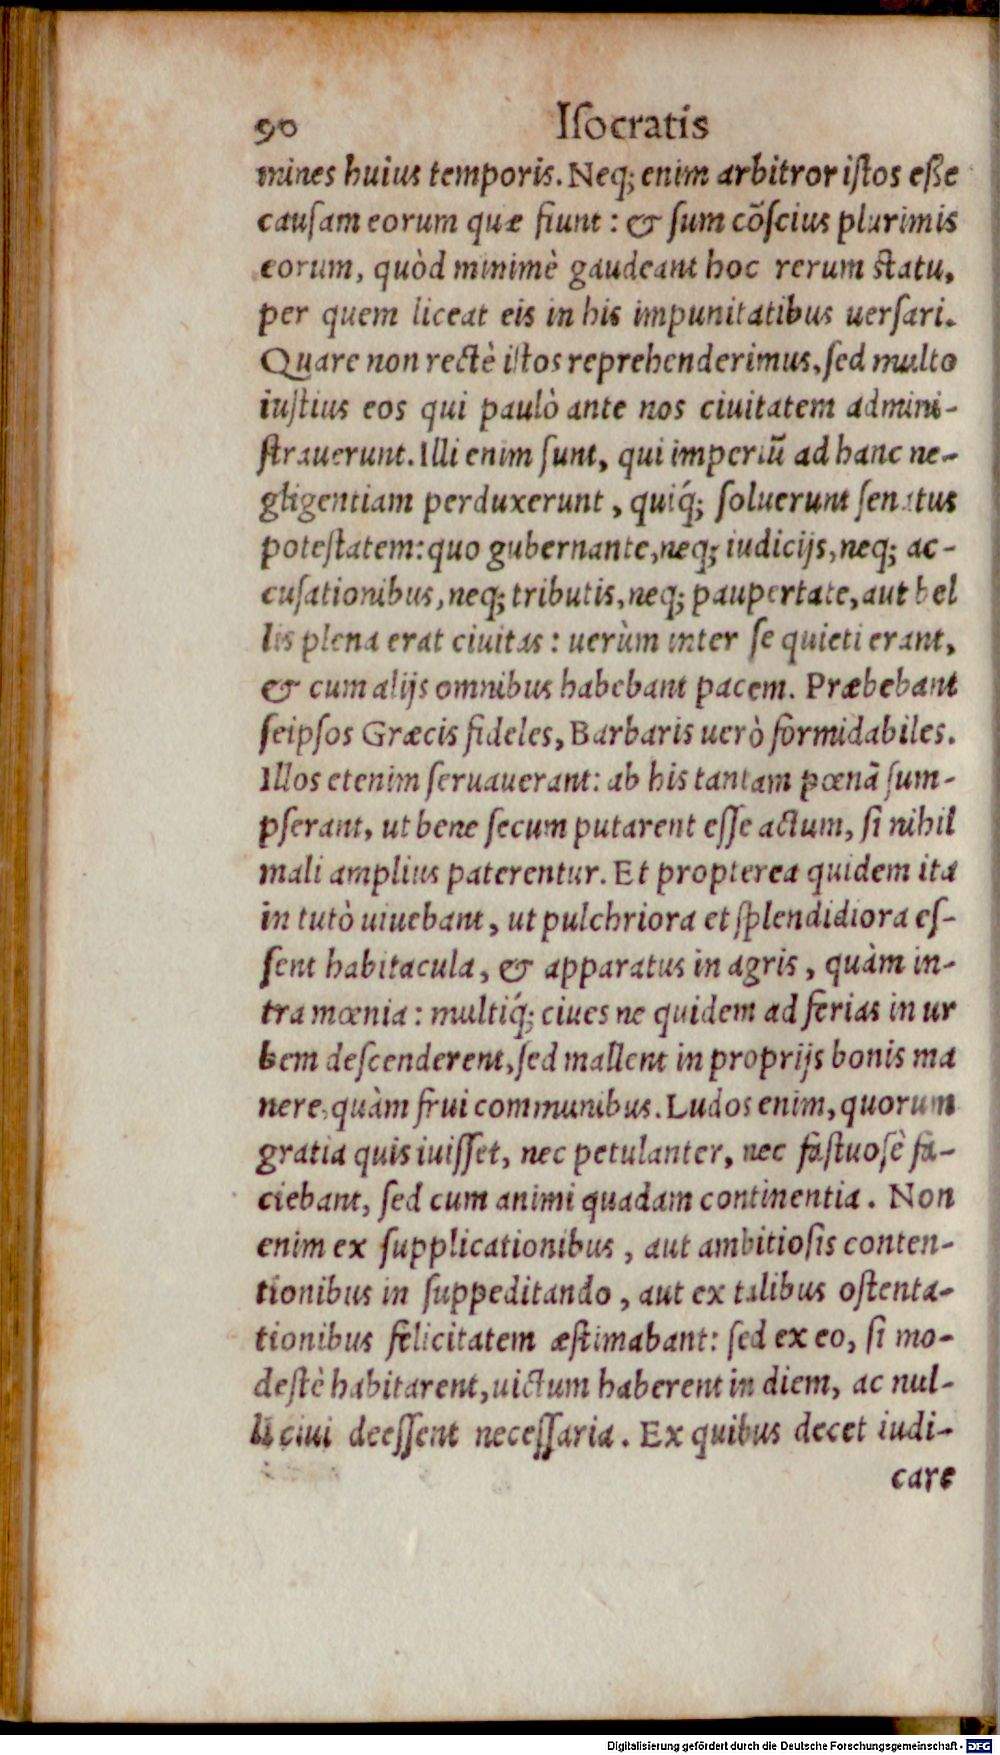 90 Iſocratis
mines huius temporis. Neq; enim arbitror iſtos eſſe
cauſam eorum quæ fiunt : & ſum cõſcius plurimis
eorum, quòd minimè gaudeant hoc rerum statu,
per quem liceat eis in his impunitatibus uerſari.
Quare non rectè iſtos reprehenderimus, ſed multo
iuſtius eos qui paulò ante nos ciuitatem admini-
ſtrauerunt. Illi enim ſunt, qui imperiũ ad hanc ne-
gligentiam perduxerunt, quiq́; ſoluerunt ſenatus
poteſtatem: quo gubernante, neq; iudicijs, neq; ac-
cuſationibus, neq; tributis, neq; paupertate, aut bel
lis plena erat ciuitas : uerùm inter ſe quieti erant,
& cum alijs omnibus habebant pacem. Præbebant
ſeipſos Græcis fideles, Barbaris uerò formidabiles.
Illos etenim ſeruauerant: ab his tantam pœnã ſum-
pſerant, ut bene ſecum putarent eſſe actum, ſi nihil
mali amplius paterentur. Et propterea quidem ita
in tutò uiuebant, ut pulchriora et ſplendidiora eſ-
ſent habitacula, & apparatus in agris, quàm in-
tra mœnia : multiq́; ciues ne quidem ad ferias in ur
bem deſcenderent, ſed mallent in proprijs bonis ma
nere, quàm frui communibus. Ludos enim, quorum
gratia quis iuiſſet, nec petulanter, nec faſtuoſè fa-
ciebant, ſed cum animi quadam continentia. Non
enim ex ſupplicationibus, aut ambitioſis conten-
tionibus in ſuppeditando, aut ex talibus oſtenta-
tionibus felicitatem æſtimabant: ſed ex eo, ſi mo-
deſtè habitarent, uictum haberent in diem, ac nul-
li ciui deeſſent neceſſaria. Ex quibus decet iudi-
care
Digitalisierung gefördert durch die Deutsche Forschungsgemeinschaft - DFG